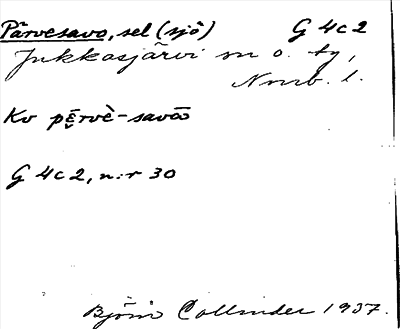 Pärvesavo, sel (sjö) G 4c2
Jukkasjärvi sn o. tg,
Nmrb. l.
Kv pę̄rvè-savō̄
G 4c2, n:r 30
Björn Collinder 1937.